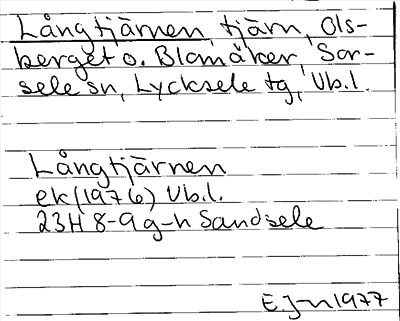 Långtjärnen, tjärn, Ols-
berget o. Blomåker, Sor-
sele sn, Lycksele tg, Vb.l.
Långtjärnen
ek (1976) Vb.l.
23H 8-9 g-h Sandsele
E.J-n 1977